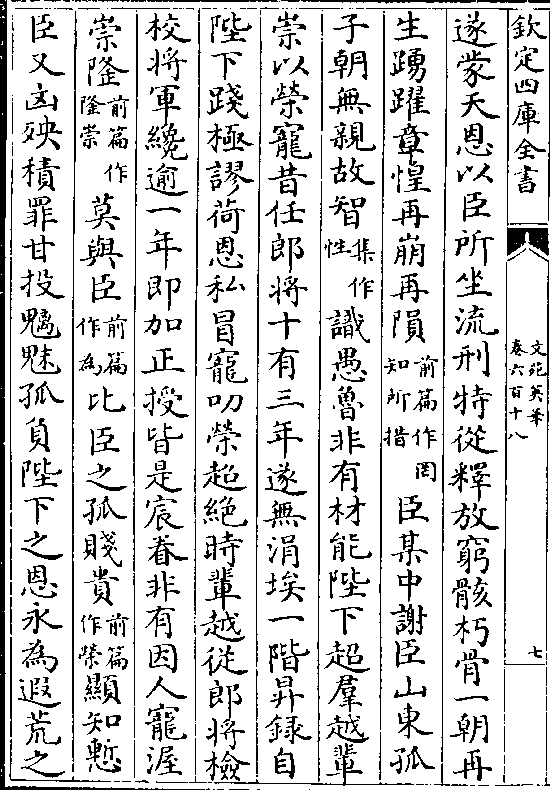 欽定四庫全書
文苑英華
卷六百十八
七
遂蒙天恩以臣所坐流刑特從釋放窮骸朽骨一朝再
生踴躍章惶再崩再隕前篇作罔知所措臣某中謝臣山東孤
子朝無親故智集作性識愚魯非有材能陛下超羣越輩
崇以榮寵昔任郎將十有三年遂無涓埃一階昇錄自
陛下踐極謬荷恩私冒寵叨榮超絶時輩越從郎將檢
校將軍纔逾一年即加正授皆是宸眷非有因人寵渥
崇隆前篇作隆崇莫與臣前篇作為比臣之孤賤貴前篇作榮顯知慙
臣又凶殃積罪甘投魑魅孤負陛下之恩永為遐荒之